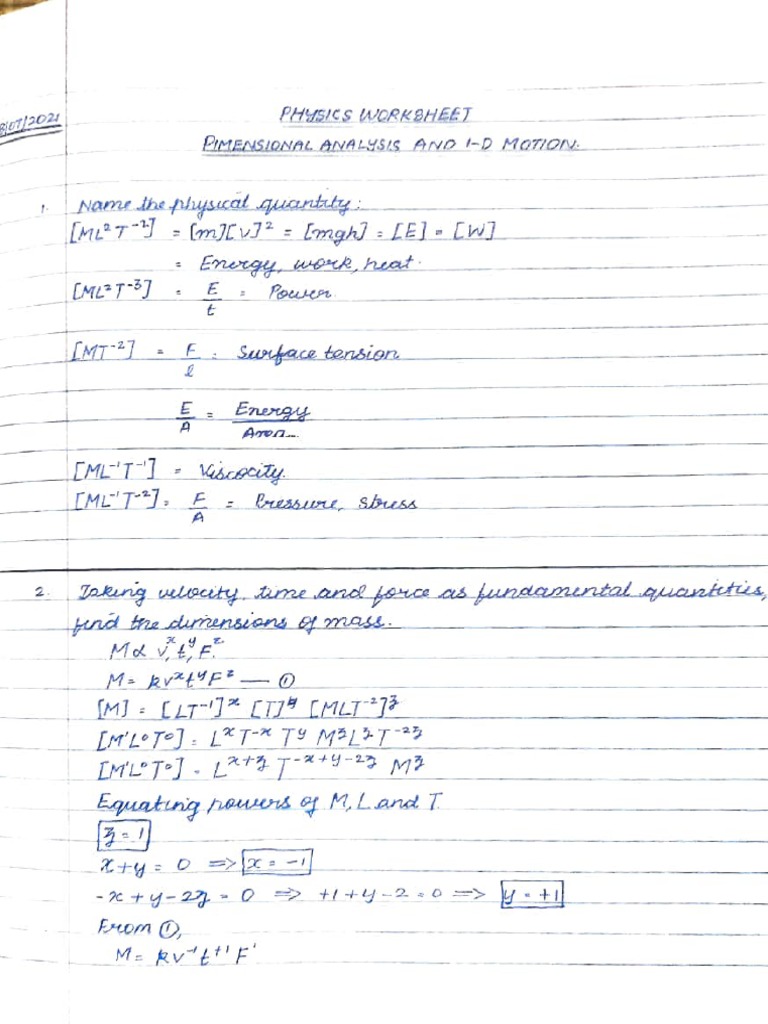 /2021
PHYSICS WORKSHEET
DIMENSIONAL ANALYSIS AND 1-D MOTION.
1. Name the physical quantity:
[ML²T⁻²] = [m][v]² = [mgh] = [E] = [W]
= Energy, work, heat.
[ML²T⁻³] = E/t = Power.
[MT⁻²] = F/l = Surface tension
E/A = Energy/
[ML⁻¹T⁻¹] = Viscocity.
[ML⁻¹T⁻²] = F/A = Pressure, stress
2. Taking velocity, time and force as fundamental quantities,
find the dimensions of mass.
M ∝ vˣ, tʸ, Fᶻ
M = kvˣtʸFᶻ — ①
[M] = [LT⁻¹]ˣ [T]ʸ [MLT⁻²]ᶻ
[M¹L⁰T⁰] = LˣT⁻ˣ Tʸ MᶻLᶻT⁻²ᶻ
[M¹L⁰T⁰] = Lˣ⁺ᶻ T⁻ˣ⁺ʸ⁻²ᶻ Mᶻ
Equating powers of M, L and T
z = 1
x + y = 0 => x = -1
-x + y - 2z = 0 => +1 + y - 2 = 0 => y = +1
From ①,
M = kv⁻¹t⁺¹F¹